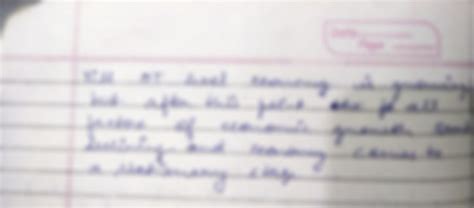 Date
Page
Till OT level economy is growing
but after this point due to all
factors of economic growth
and economy comes to
a stationary stage